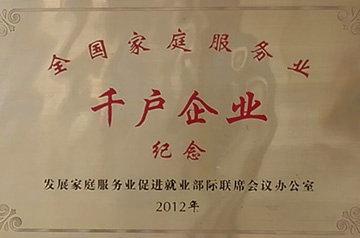 全国家庭服务业
千户企业
纪念
发展家庭服务业促进就业部际联席会议办公室
2012年